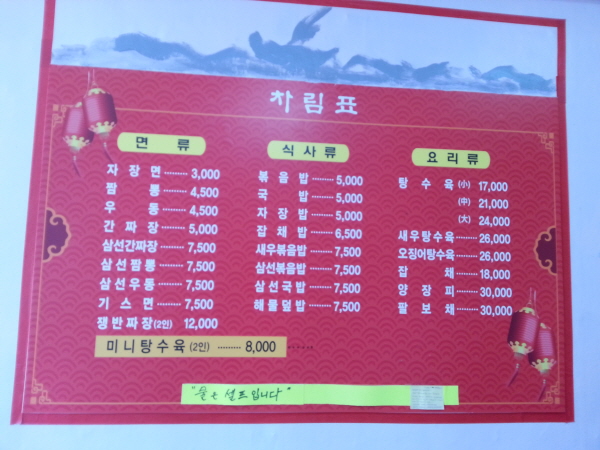 차림표
면 류
자 장 면 ········· 3,000
짬 뽕 ········· 4,500
우 동 ········· 4,500
간 짜 장 ········· 5,000
삼선간짜장 ········· 7,500
삼 선 짬 뽕 ········· 7,500
삼 선 우 동 ········· 7,500
기 스 면 ········· 7,500
쟁반짜장(2인) 12,000
미니탕수육(2인) ········· 8,000
식 사 류
볶 음 밥 ········· 5,000
국 밥 ········· 5,000
자 장 밥 ········· 5,000
잡 채 밥 ········· 6,500
새우볶음밥 ········· 7,500
삼선볶음밥 ········· 7,500
삼 선 국 밥 ········· 7,500
해 물 덮 밥 ········· 7,500
요 리 류
탕 수 육 (小) 17,000
(中) 21,000
(大) 24,000
새우탕수육 ········· 26,000
오징어탕수육 ········· 26,000
잡 채 ········· 18,000
양 장 피 ········· 30,000
팔 보 채 ········· 30,000
"물은 셀프입니다"